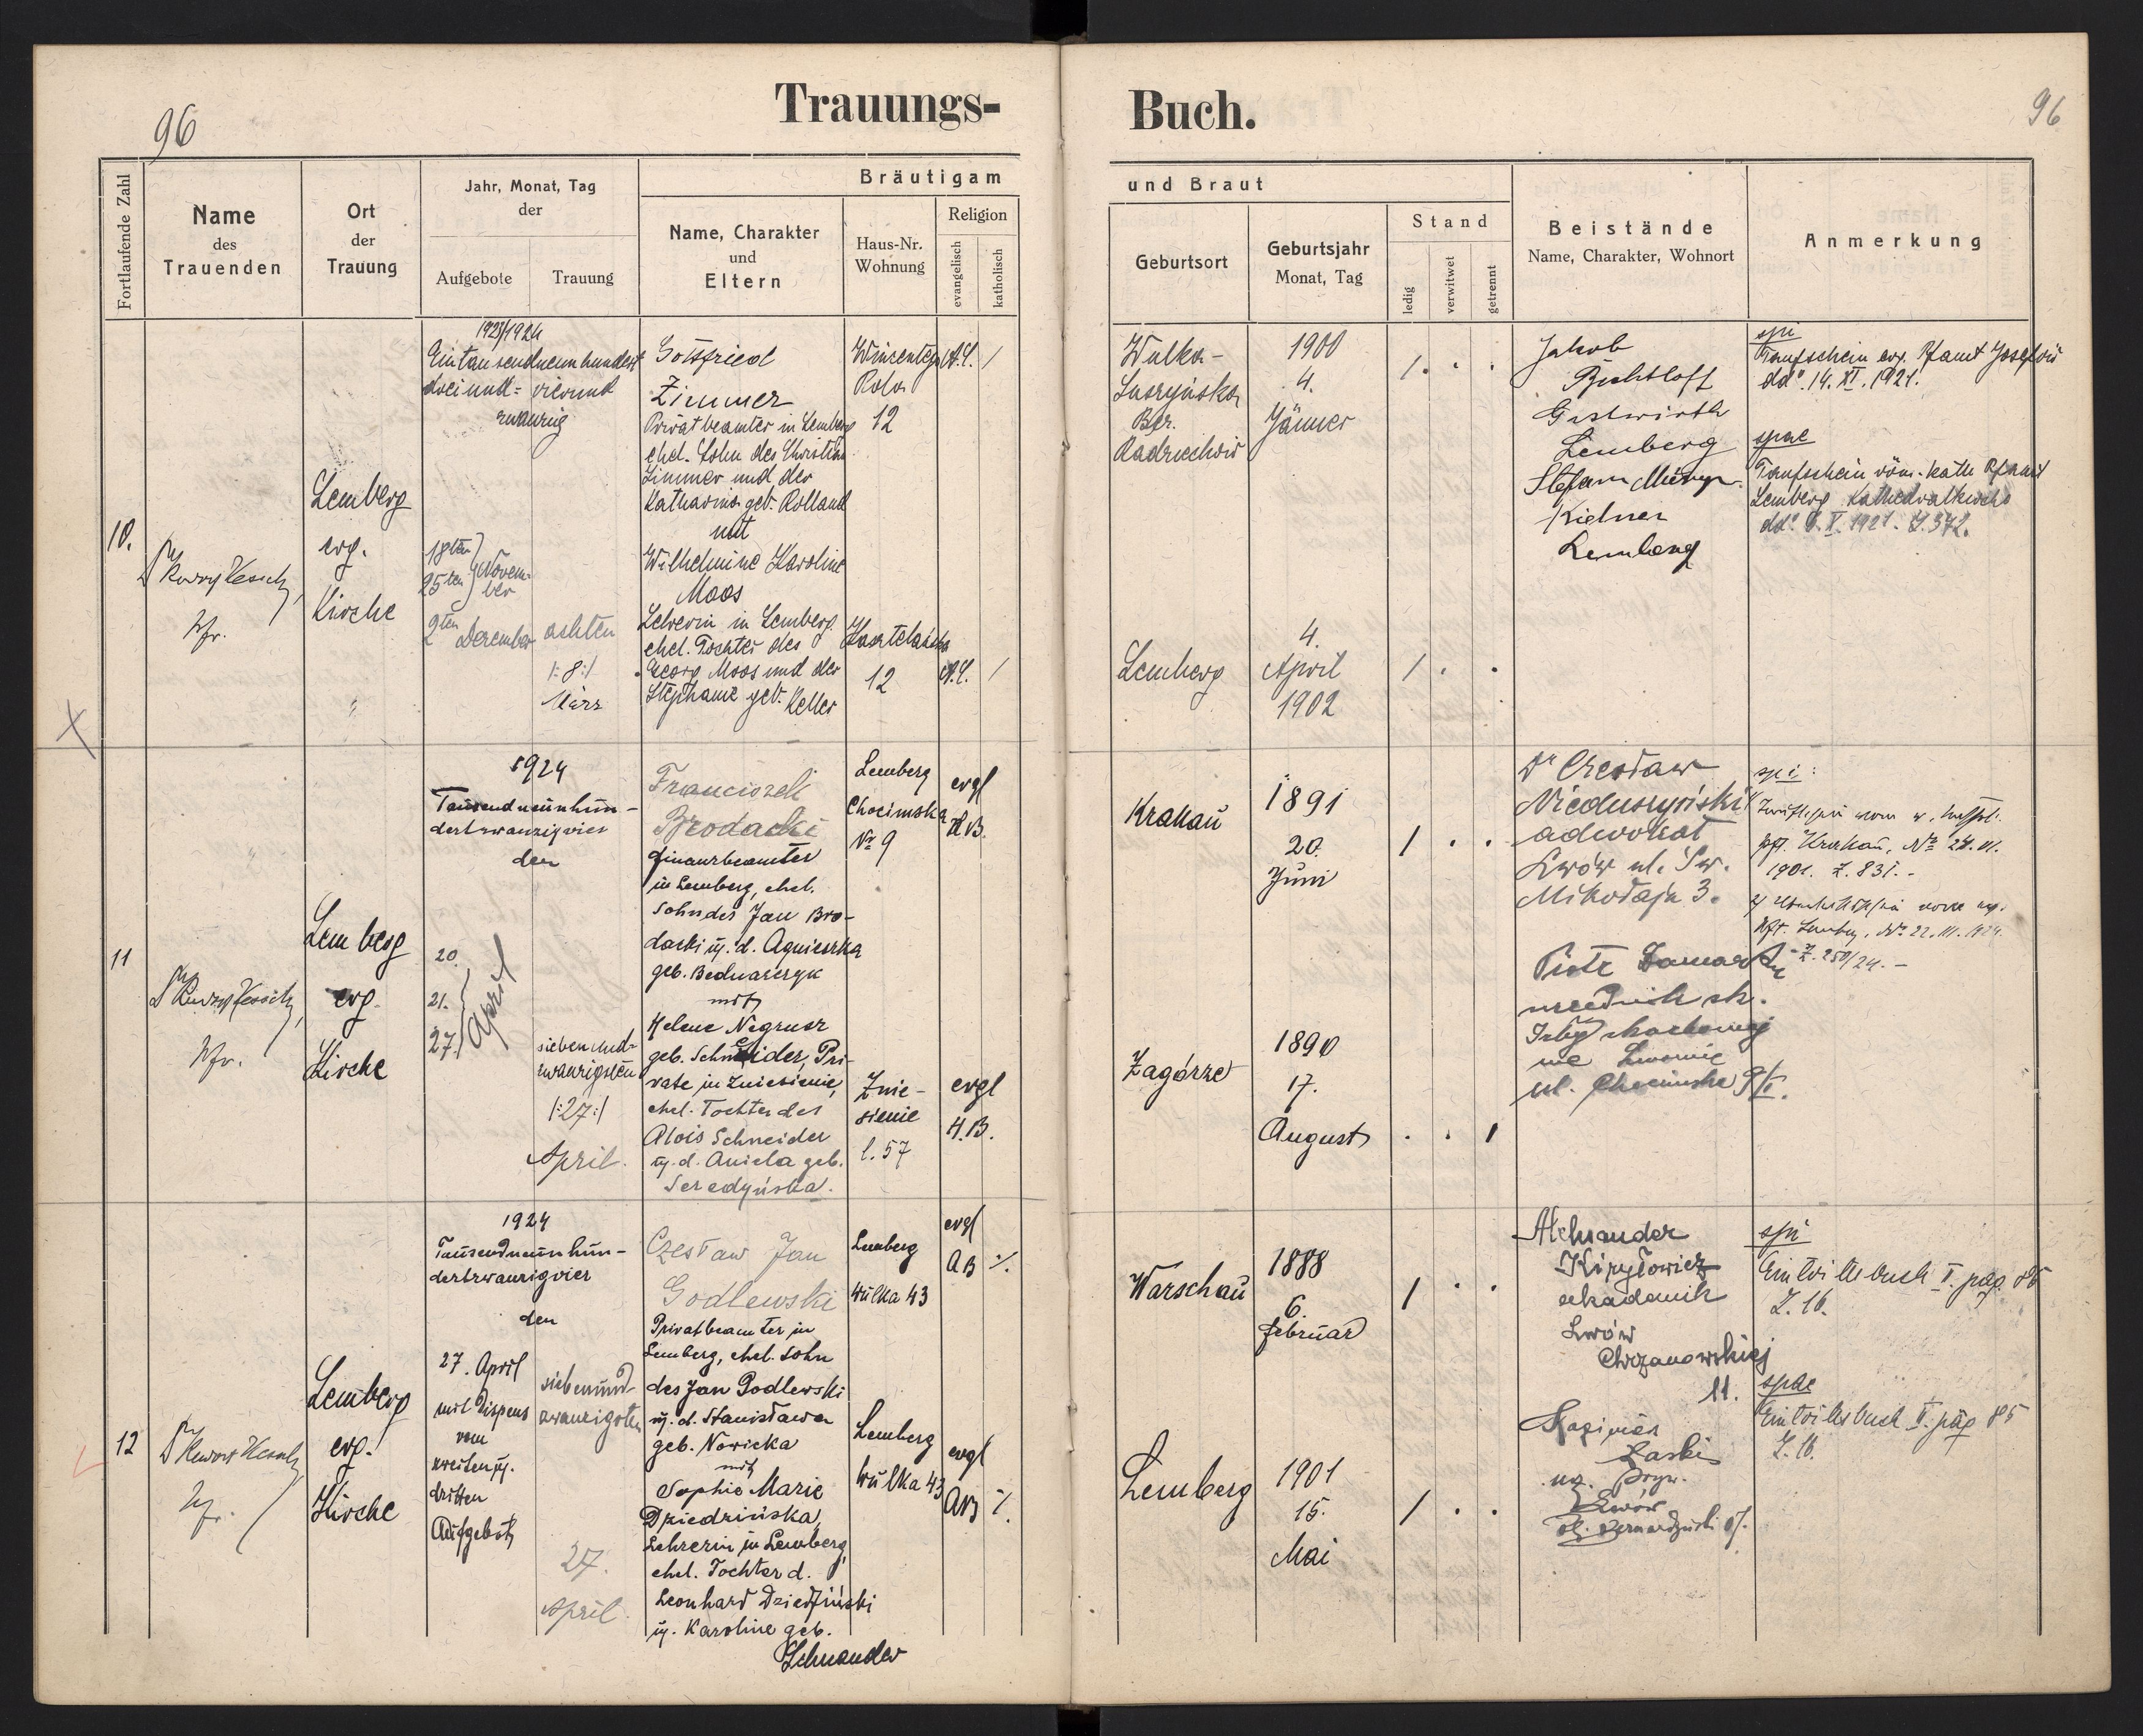 96
Trauungs-
Buch.
96
Fortlaufende Zahl
Name
des
Trauenden
Ort
der
Trauung
Jahr, Monat, Tag
der
Aufgebote
Trauung
Bräutigam
Name, Charakter
und
Eltern
Haus-Nr.
Wohnung
Religion
evangelisch
katholisch
und Braut
Geburtsort
Geburtsjahr
Monat, Tag
Stand
ledig
verwitwet
getrennt
Beistände
Name, Charakter, Wohnort
Anmerkung
10.
Pfr.
Lemberg
evg.
Kirche
1923/1924
Eintausendneunhundert
dreiund- vierund
zwanzig
18ten
25ten Novem-
ber
2ten Dezember
achten
/:8:/
März
Gottfried
Zimmer
Privatbeamter in Lemberg
ehel. Sohn des Christian
Zimmer und der
Katharina geb. Rolland
mit
Wilhelmine Karoline
Moos
Lehrerin in Lemberg
ehel. Tochter des
Georg Moos und der
Stephanie geb. Keller
Wincentego
Pola
12
12
/
/
Wulka-
Bez.
1900
4.
Jänner
Lemberg
4.
April
1902
/ . .
/ . .
Jakob
Gastwirth
Lemberg
Stefan
Lemberg
spi
Taufschein evg. Pfamt Josefow
dd. 14. XI. 1921.
spae
Taufschein röm. kath. Pfamt
Lemberg Kathedralkirche
Z. 372.
11
Pfr.
Lemberg
evg.
Kirche
1924
Tausendneunhun-
dertzwanzigvier
den
20.
21.
27.
April
siebenund-
zwanzigsten
/:27:/
April.
Franciszek
Brodacki
Finanzbeamter
in Lemberg, ehel.
Sohn des Jan Bro-
dacki u. d. Agnieszka
geb. Bednarczyk
mit
Helene Negrusz
geb. Schneider, Pri-
vate in Zniesienie,
ehel. Tochter des
Alois Schneider
u. d. Aniela geb.
Seredyńska.
Lemberg
Chocimska
Nr 9
evgl
H.B.
Znie-
sienie
l. 57
evgl
H.B.
Krakau
1891
20.
Juni
/ . .
Zagórze
1890
17.
August
. . /
Dr Czesław
Nieduszyński
adwokat
Lwów ul. Św.
Mikołaja 3.
Piotr
urzednik sk.
Izby skarbowej
we Lwowie
ul. Chocimska 9/I.
spi:
Krakau, No 24. III.
1901. Z. 831.-
Pft. Lemberg, No 22. III. 1924.
Z. 250/24.-
12
Pfr.
Lemberg
evg.
Kirche
1924
Tausendneunhun-
dertzwanzigvier
den
27. April
mit Dispens
vom
zweiten u.
dritten
Aufgebot
siebenund-
zwanzigsten
27.
April.
Czesław Jan
Godlewski
Privatbeamter in
Lemberg, ehel. Sohn
des Jan Godlewski
u. d. Stanisława
geb. Nowicka
mit
Sophie Marie
Dziedzińska,
Lehrerin in Lemberg,
ehel. Tochter d.
Leonhard Dziedziński
u. Karoline geb.
Schnander
Lemberg
Wulka 43
evgl
AB
Lemberg
Wulka 43
evgl
AB
Warschau
1888
6.
Februar
/ . .
Lemberg
1901
15.
Mai
/ . .
Aleksander
Kiryłowicz
akademik
Lwów
Chrzanowskiej
11.
Kazimierz
Lwów
spi
Eintrittsbuch I. pag. 85
Z. 16.
spae
Eintrittsbuch II. pag 85
Z. 16.